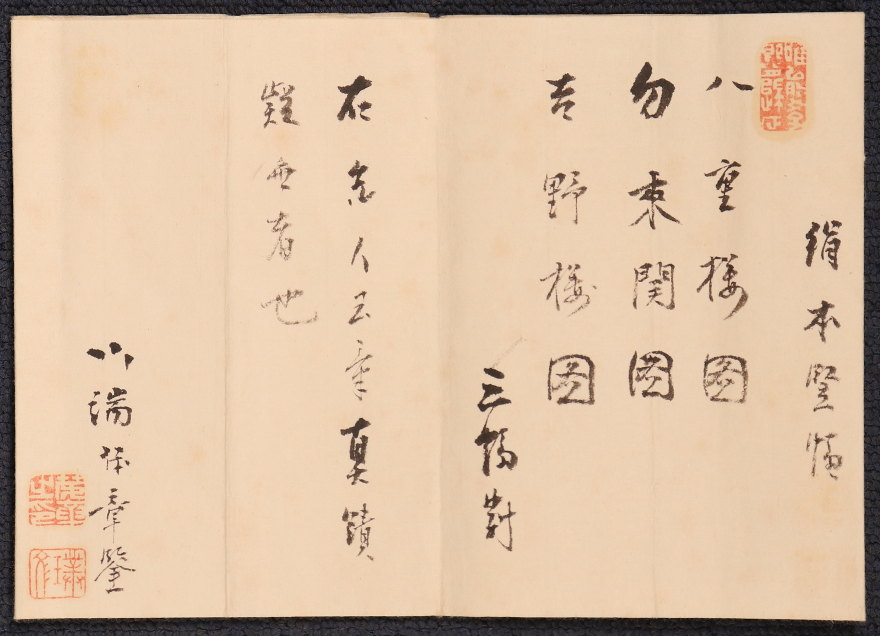 絹本竪幅
八重桜図
勿来関図
吉野桜図
三幅対
右先人玉章真蹟
疑無者也
川端茂章鑒